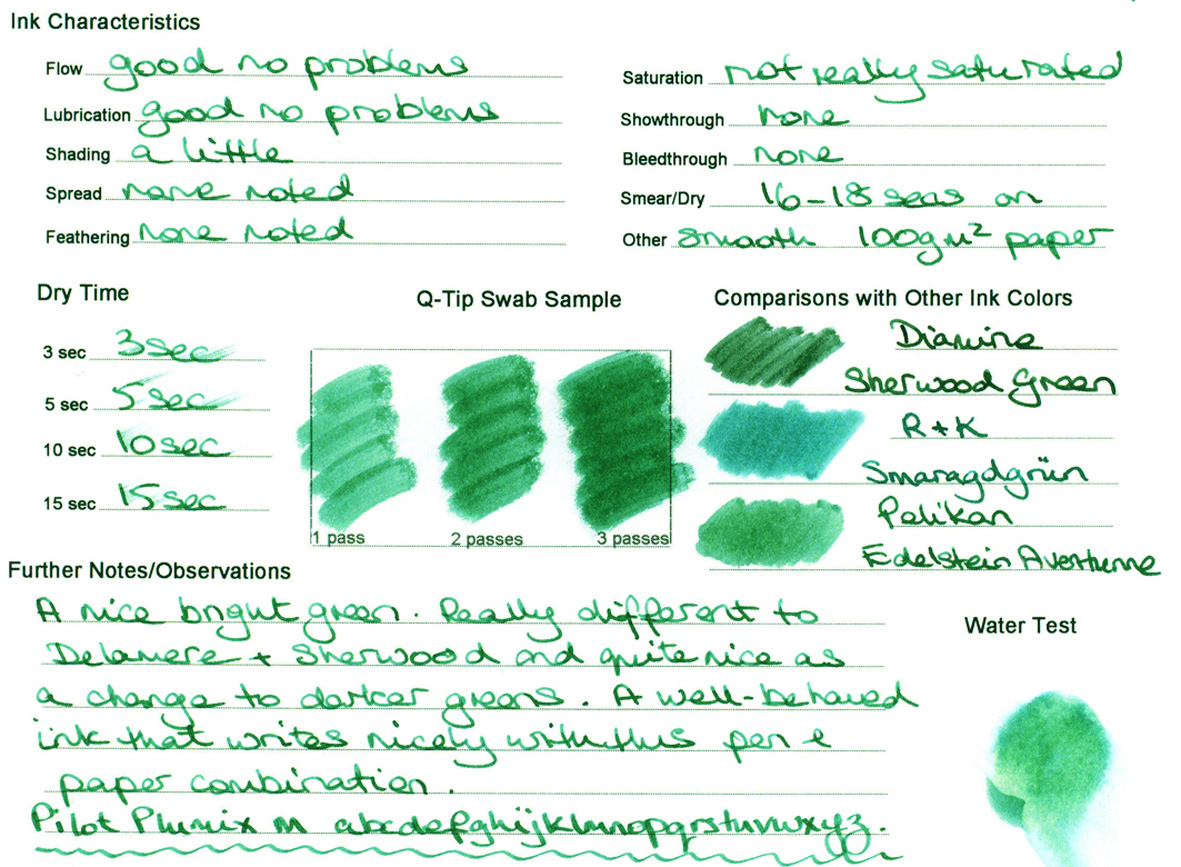 Ink Characteristics
Flow good no problems
Lubrication good no problems
Shading a little
Spread none noted
Feathering None noted
Saturation not really saturated
Showthrough none
Bleedthrough none
Smear/Dry 16-18 secs on
Other smooth 100gm² paper
Dry Time
3 sec 3sec
5 sec 5sec
10 sec 10sec
15 sec 15sec
Q-Tip Swab Sample
1 pass 2 passes 3 passes
Comparisons with Other Ink Colors
Diamine
Sherwood Green
R+K
Smaragdgrün
Pelikan
Edelstein Aventurine
Further Notes/Observations
A nice bright green. Really different to
Delamere + Sherwood and quite nice as
a change to darker greens. A well-behaved
ink that writes nicely with this pen &
paper combination.
Pilot Plumix M abcdefghijklmnopqrstuvwxyz.
Water Test